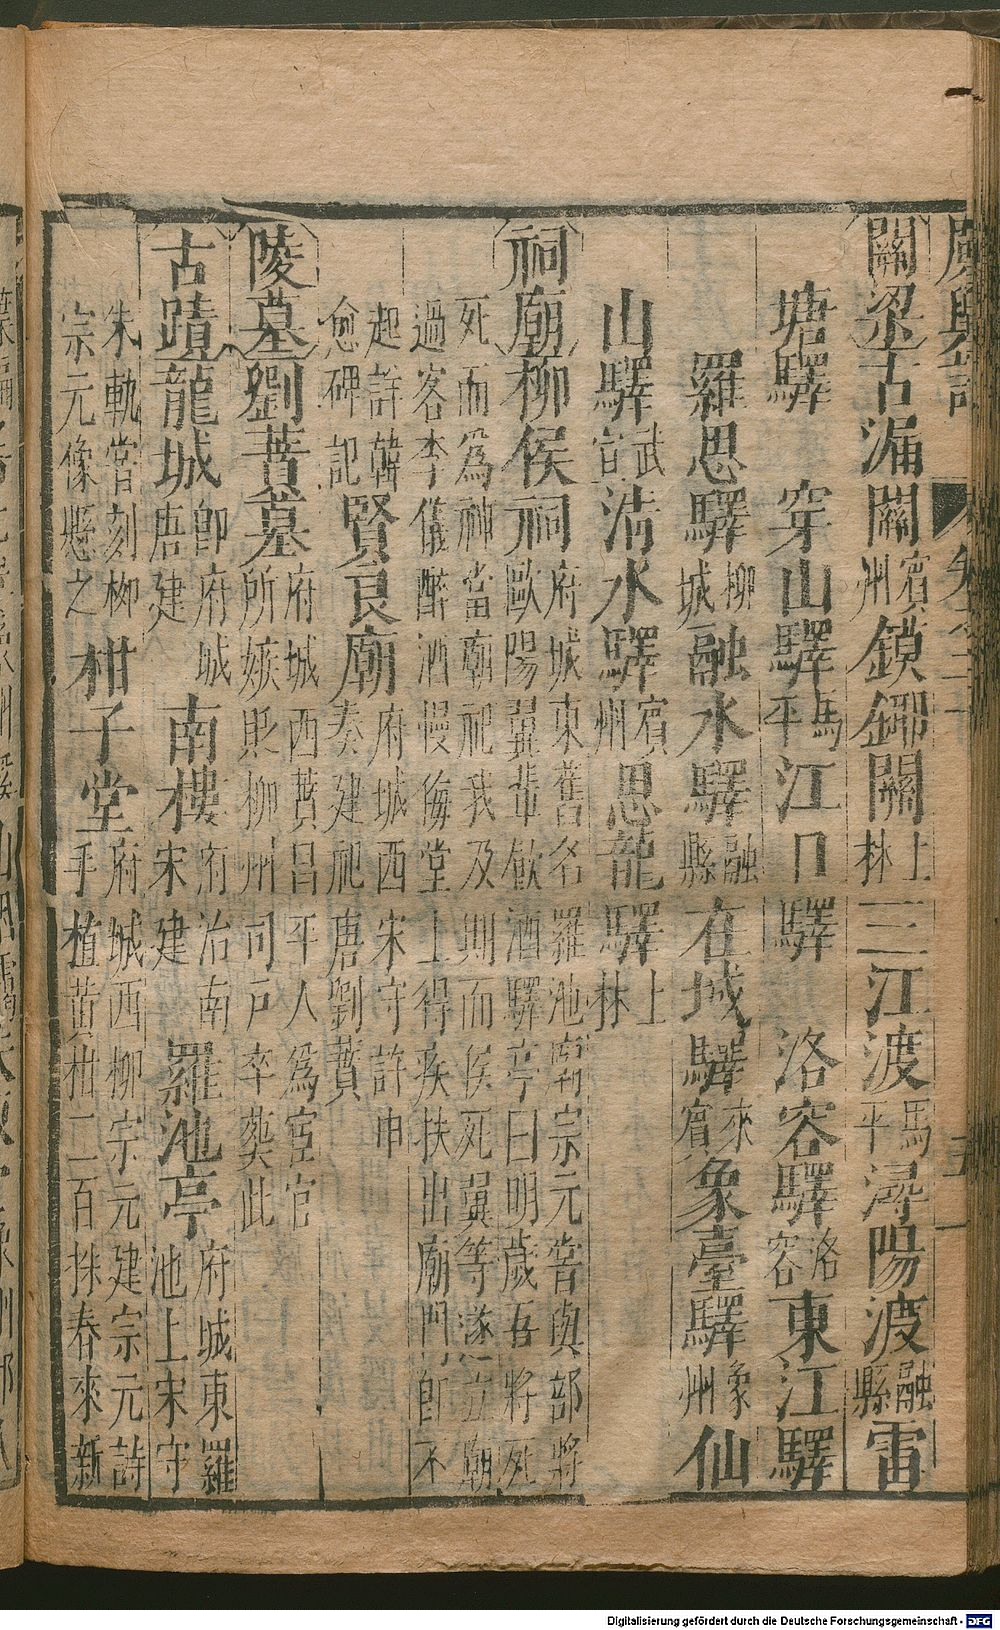 關梁古漏關賓州鏌鎁關上林三江渡馬平潯陽渡融縣雷
塘驛　穿山驛馬平江口驛　洛容驛洛容東江驛
羅思驛柳城融水驛融縣在城驛來賓象臺驛象州仙
山驛武宣清水驛賓州思龍驛上林
祠廟柳侯祠府城東舊名羅池廟宗元嘗與部將
歐陽翼輩飲酒驛亭曰明歲吾將死
死而爲神當廟祀我及期而侯死翼等遂立廟
過客李儀醉酒慢侮堂上得疾扶出廟門即不
起許韓
愈碑記賢良廟府城西宋守許申
奏建祀唐劉蕡
陵墓劉蕡墓府城西蕡昌平人爲宦官
所嫉貶柳州司戶卒葬此
古蹟龍城即府城
唐建南樓府治南
宋建羅池亭府城東羅
池上宋守
朱軌嘗刻柳
宗元像懸之柑子堂府城西柳宗元建宗元詩
手植黃柑二百株春來新
Digitalisierung gefördert durch die Deutsche Forschungsgemeinschaft - DFG